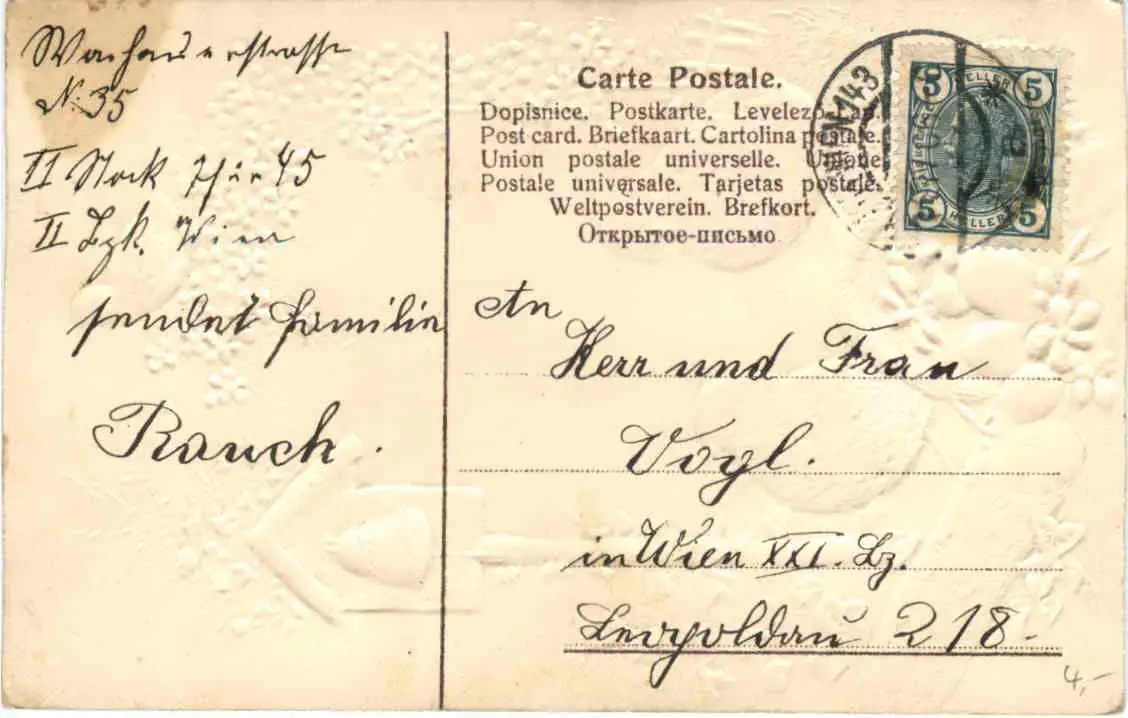 Wachauerstrasse
N. 35
II Stock Thür 45
II Bzk. Wien
sendet Familie
Rauch.
Carte Postale.
Dopisnice. Postkarte. Levelező-Lap.
Post card. Briefkaart. Cartolina postale.
Union postale universelle. Unione
Postale universale. Tarjetas postale.
Weltpostverein. Brefkort.
Открытое-письмо
143
5 5
HELLER
5 HELLER 5
An
Herr und Frau
Vogl.
in Wien XXI. Bz.
Leopoldau 218-
4,-